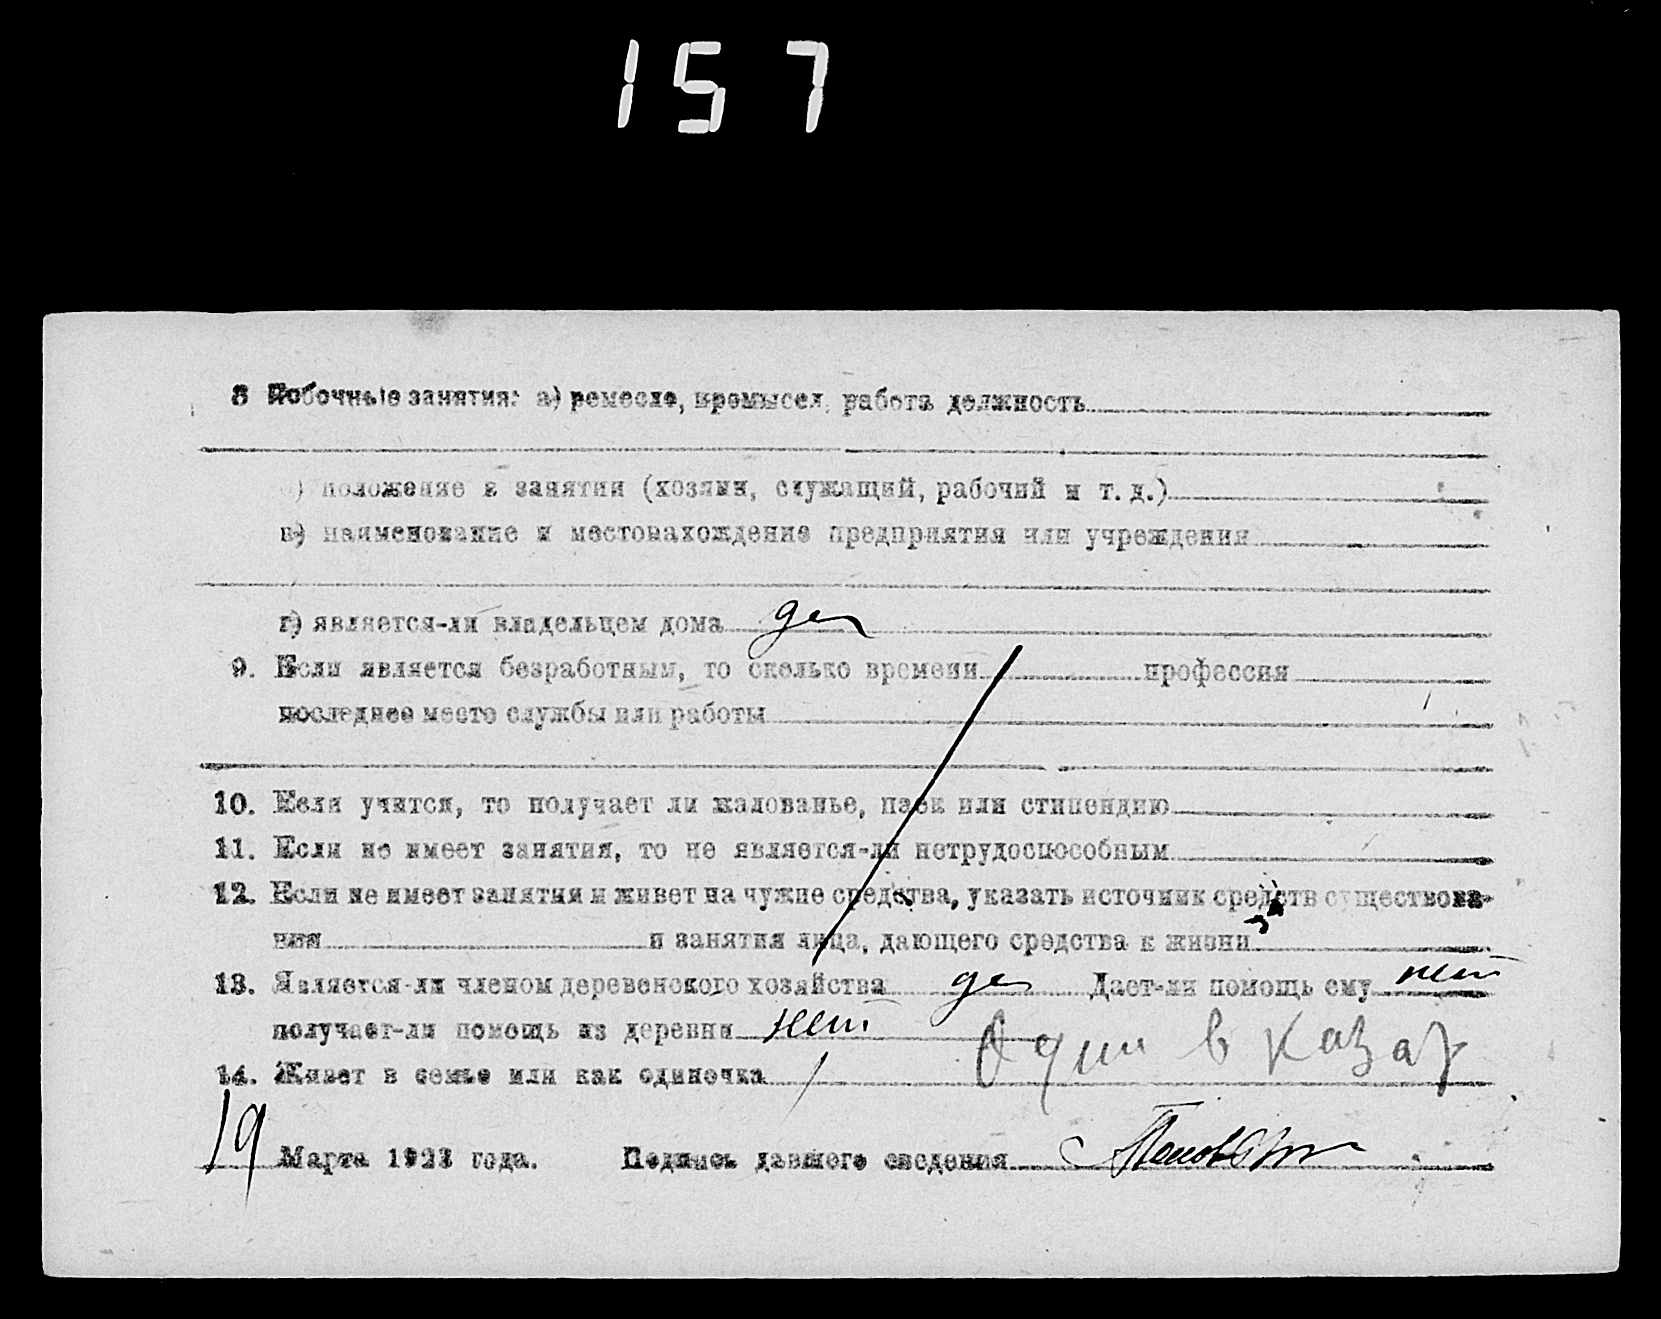 157
8 Побочные занятия: а) ремесло, промысел, работа должность
б) положение в занятии (хозяин, служащий, рабочий и т. д.)
в) наименование и местонахождение предприятия или учреждения
г) является-ли владельцем дома да
9. Если является безработным, то сколько времени профессия
последнее место службы или работы
10. Если учится, то получает ли жалованье, паек или стипендию
11. Если не имеет занятия, то не является-ли нетрудоспособным
12. Если не имеет занятия и живет на чужие средства, указать источник средств существова-
ния и занятия лица, дающего средства к жизни
13. Является-ли членом деревенского хозяйства да Дает-ли помощь ему нет
получает-ли помощь из деревни нет
14. Живет в семье или как одиночка Один в казар
19 Марта 1923 года. Подпись давшего сведения